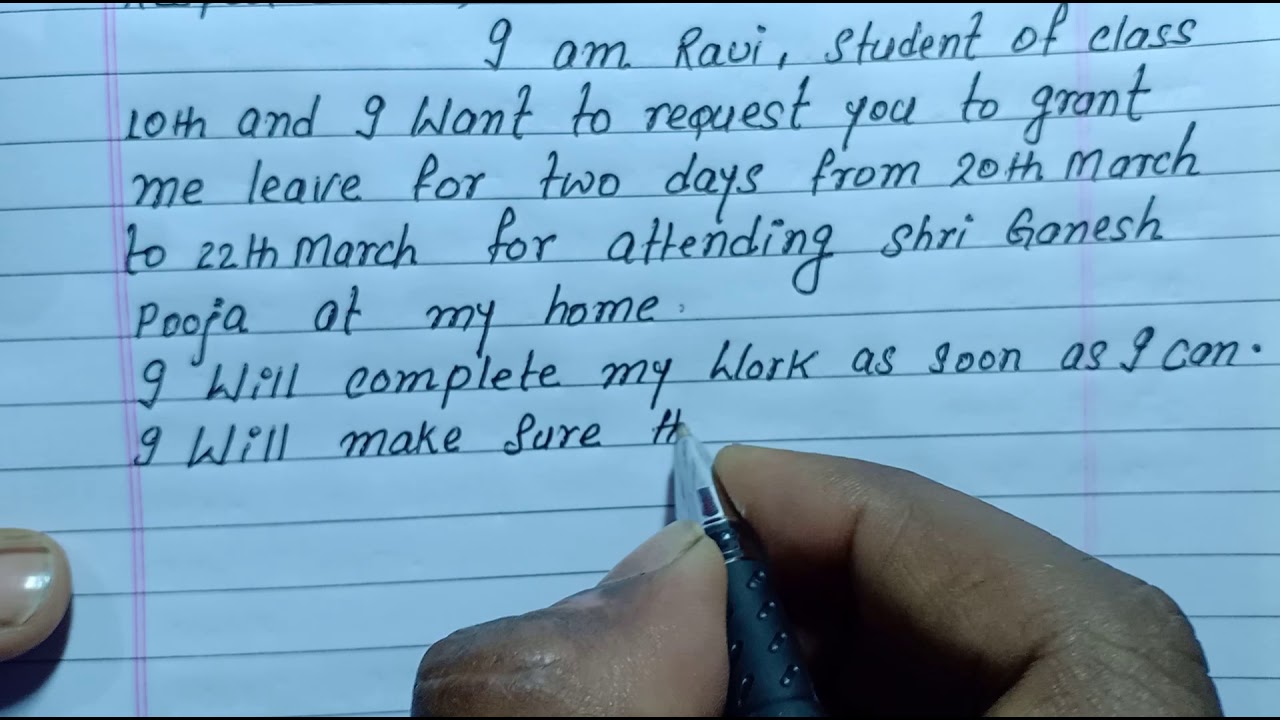 I am Ravi, student of class
10th and I want to request you to grant
me leave for two days from 20th March
to 22th March for attending shri Ganesh
Pooja at my home.
I Will complete my Work as soon as I can.
I Will make sure